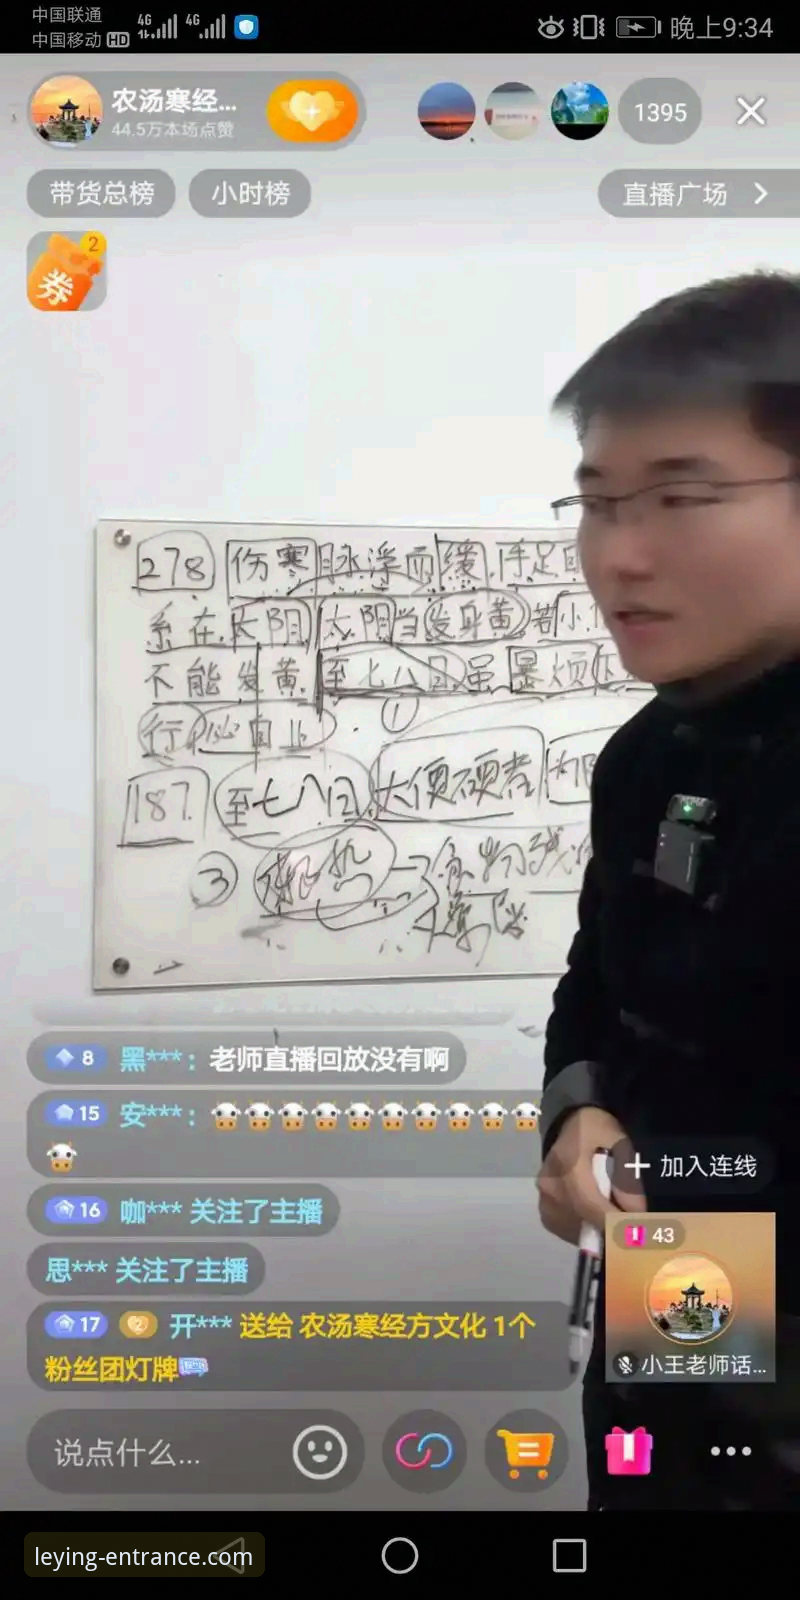 中国联通
中国移动 HD
4G 4G
晚上9:34
农汤寒经...
44.5万本场点赞
1395
带货总榜
小时榜
直播广场
2
券
278 伤寒脉浮而缓,手足自
系在太阴 太阴当发身黄 若小
不能发黄 至七八日虽暴烦
行必自止
①
187. 至七八日 大便硬者
③ 潮热
8 黑***： 老师直播回放没有啊
15 安***：
16 咖*** 关注了主播
思*** 关注了主播
17 开*** 送给 农汤寒经方文化 1个
粉丝团灯牌
加入连线
43
小王老师话...
说点什么...
leying-entrance.com